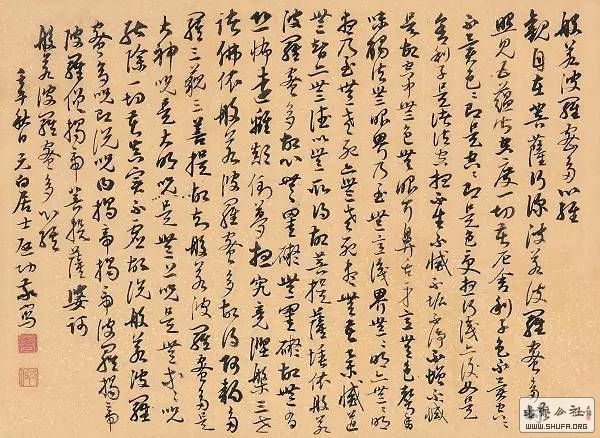 般若波羅蜜多心經
觀自在菩薩行深般若波羅蜜多時
照見五蘊皆空度一切苦厄舍利子色不異空空
不異色色即是空空即是色受想行識亦復如是
舍利子是諸法空相不生不滅不垢不淨不增不減
是故空中無色無眼耳鼻舌身意無色聲香
味觸法無眼界乃至無意識界無無明亦無無明
盡乃至無老死亦無老死盡無苦集滅道
無智亦無得以無所得故菩提薩埵依般若
波羅蜜多故心無罣礙無罣礙故無有
恐怖遠離顛倒夢想究竟涅槃三世
諸佛依般若波羅蜜多故得阿耨多
羅三藐三菩提故知般若波羅蜜多是
大神咒是大明咒是無上咒是無等等咒
能除一切苦真實不虛故說般若波羅
蜜多咒即說咒曰揭帝揭帝波羅揭帝
波羅僧揭帝菩提薩婆訶
般若波羅蜜多心經
秋日元白居士啟功敬寫
书法公社
WWW.SHUFA.ORG